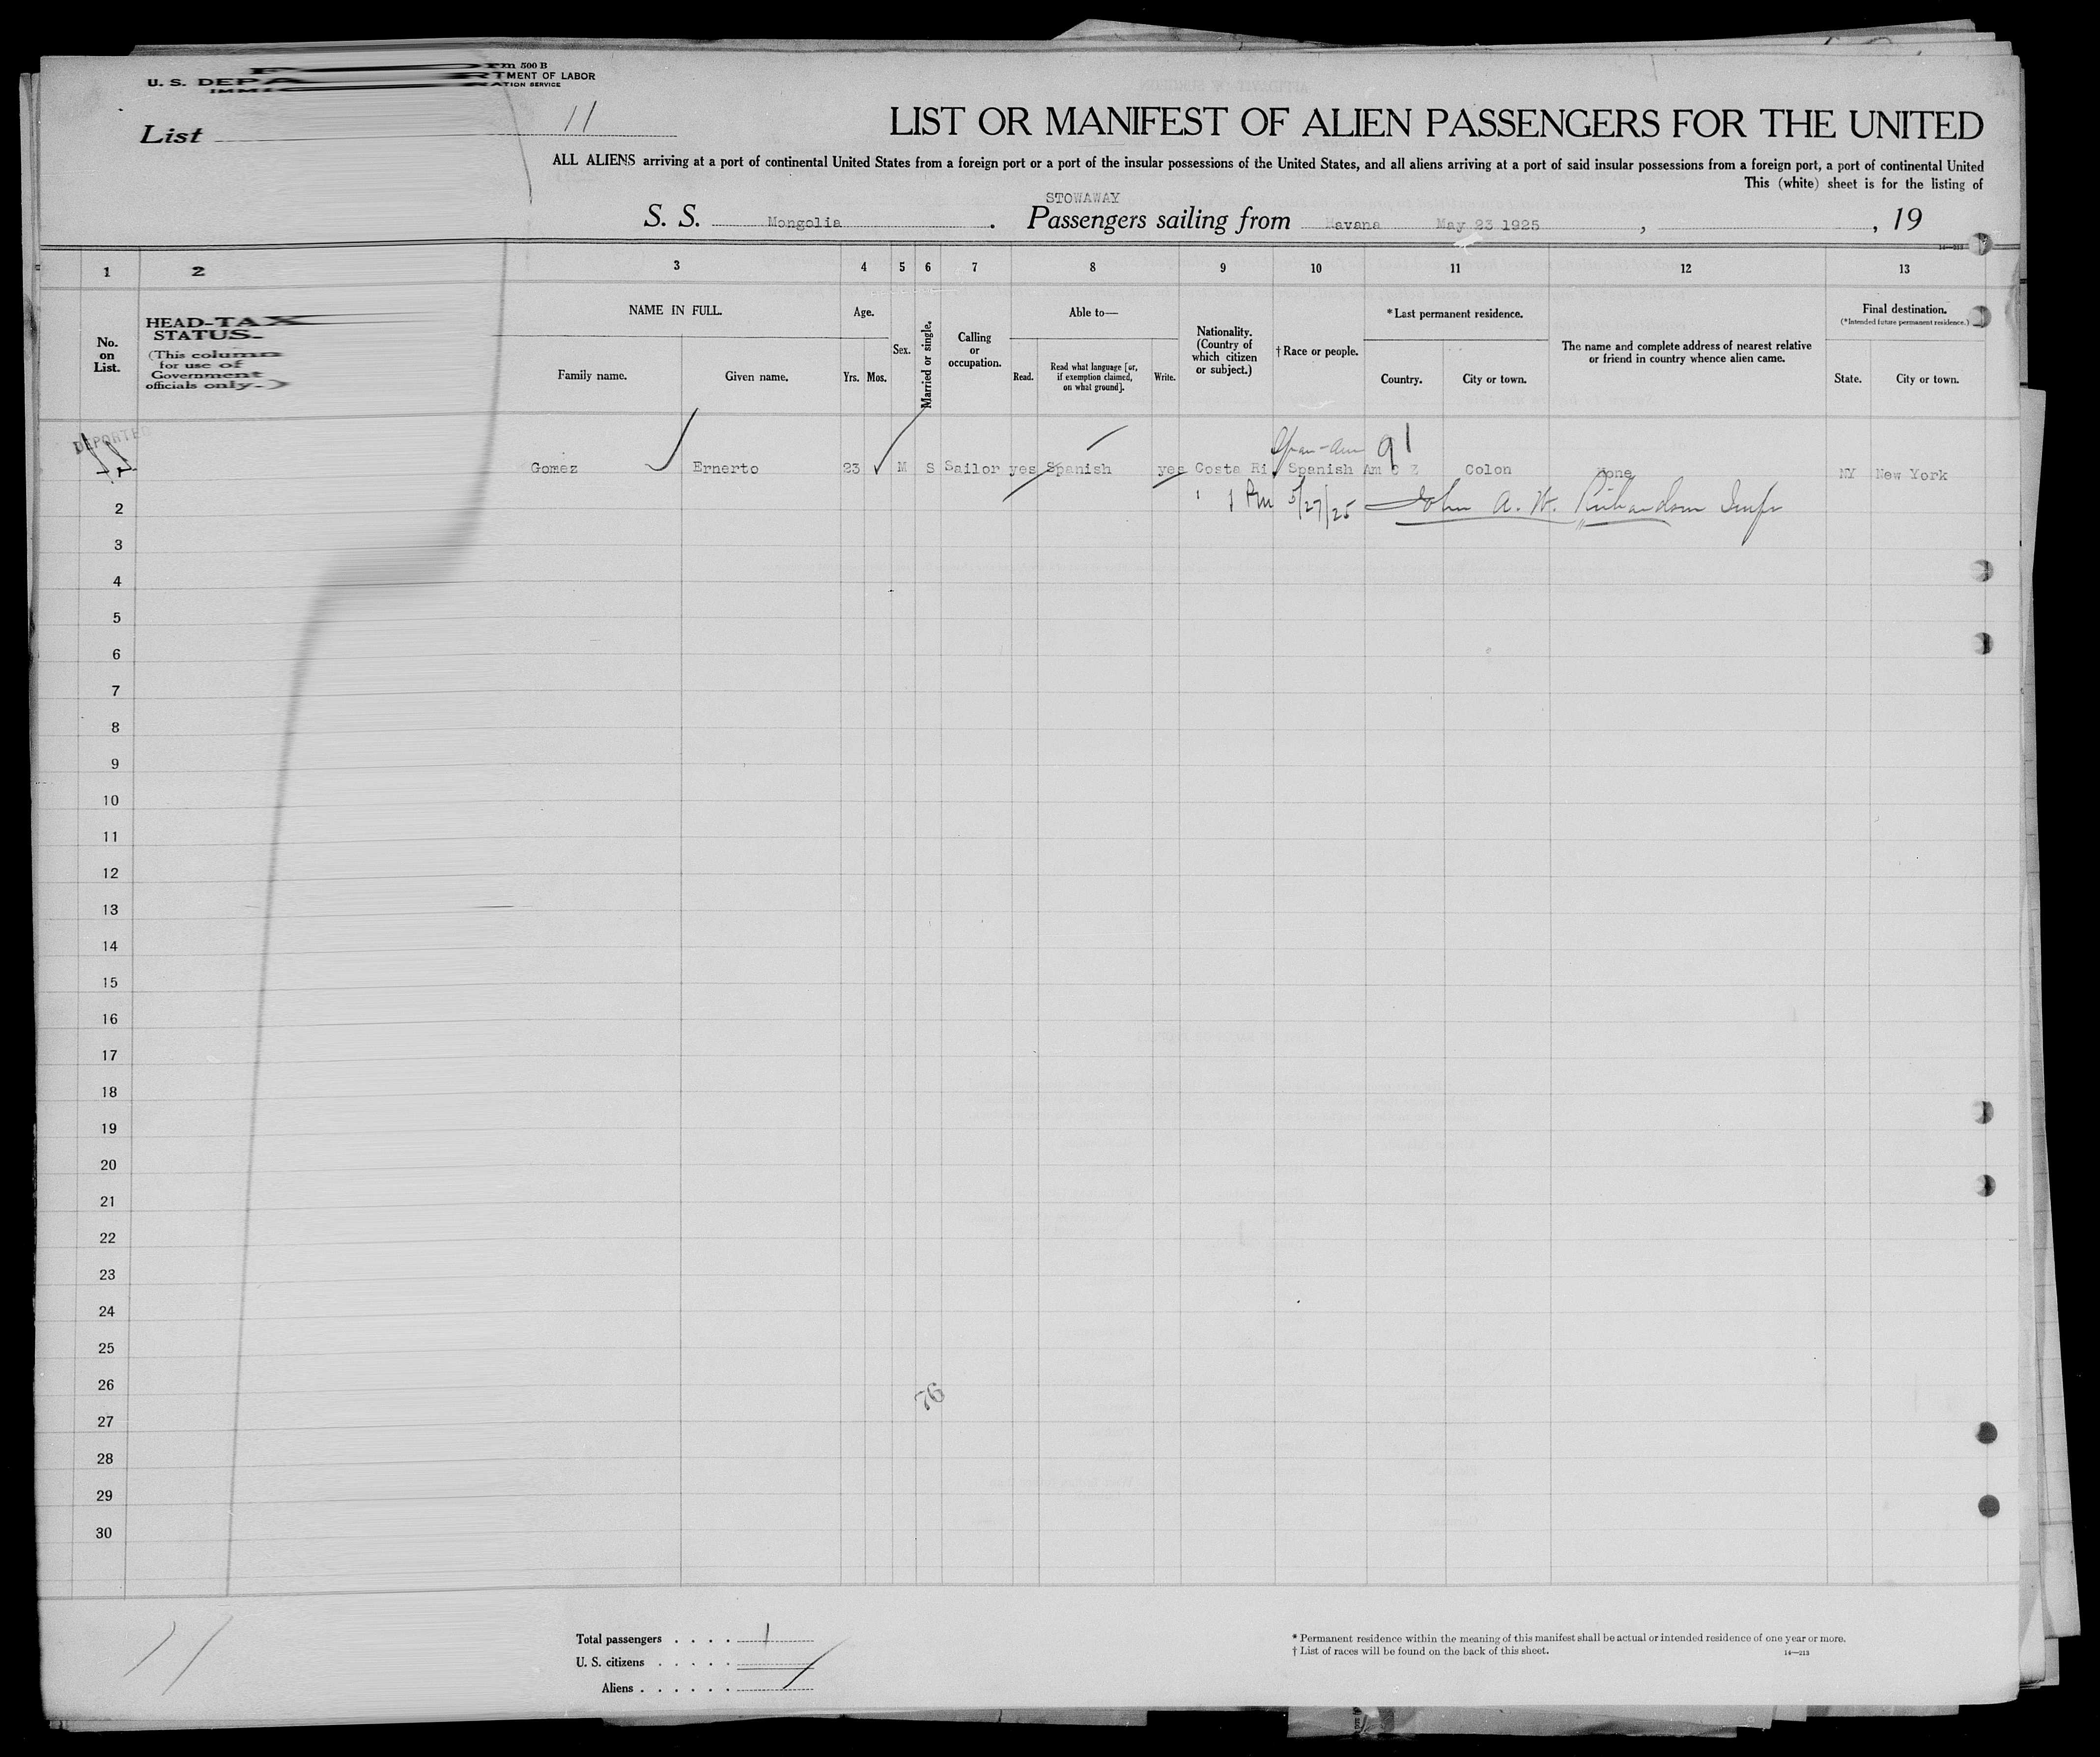 Form 500 B
U. S. DEPARTMENT OF LABOR
IMMIGRATION SERVICE
List 11
LIST OR MANIFEST OF ALIEN PASSENGERS FOR THE UNITED
ALL ALIENS arriving at a port of continental United States from a foreign port or a port of the insular possessions of the United States, and all aliens arriving at a port of said insular possessions from a foreign port, a port of continental United
This (white) sheet is for the listing of
STOWAWAY
S. S. Mongolia . Passengers sailing from Havana May 23 1925 , , 19
1 2 3 4 5 6 7 8 9 10 11 12 13
No. on List.
HEAD-TAX STATUS.
(This column for use of Government officials only.)
NAME IN FULL.
Family name. Given name.
Age.
Yrs. Mos.
Sex.
Married or single.
Calling or occupation.
Able to—
Read. Read what language [or, if exemption claimed, on what ground]. Write.
Nationality. (Country of which citizen or subject.)
† Race or people.
* Last permanent residence.
Country. City or town.
The name and complete address of nearest relative or friend in country whence alien came.
Final destination.
(* Intended future permanent residence.)
State. City or town.
DEPORTED
Span-Am 91
Gomez Ernerto 23 M S Sailor yes Spanish yes Costa Ri Spanish Am C Z Colon None NY New York
PM 5/27/25 John A. W. Richardson Inspr
2
3
4
5
6
7
8
9
10
11
12
13
14
15
16
17
18
19
20
21
22
23
24
25
26
76
27
28
29
30
11
Total passengers . . . . 1
U. S. citizens . . . . .
Aliens . . . . . .
* Permanent residence within the meaning of this manifest shall be actual or intended residence of one year or more.
† List of races will be found on the back of this sheet.
14—213